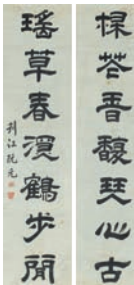 楳花香馥琴心古
瑤草春深鶴步閒
邗江阮元